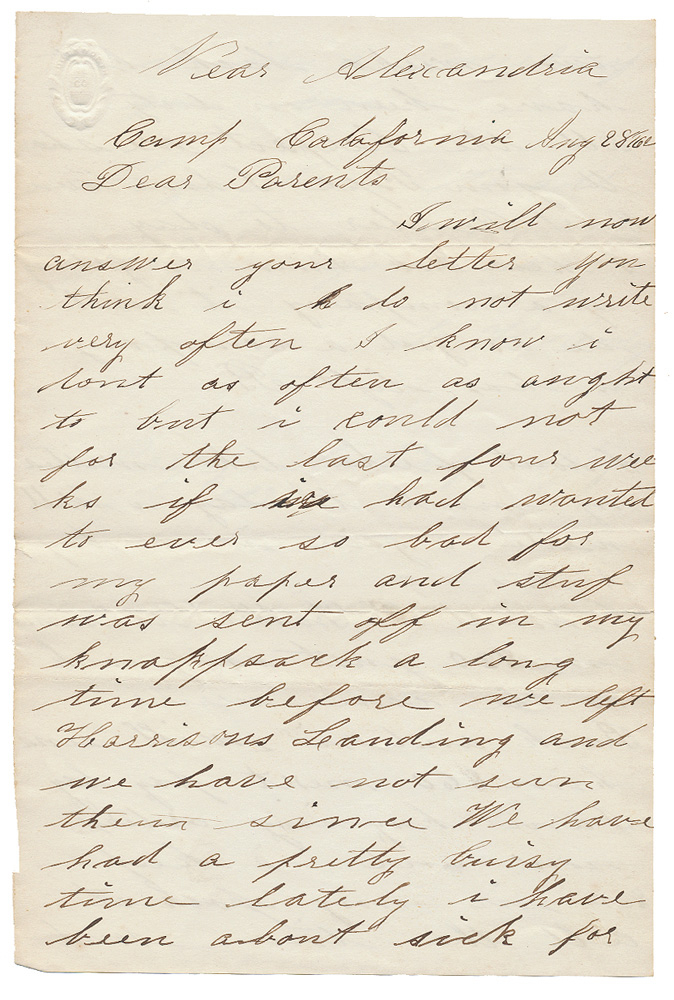 Near Alexandria
Camp Calafornia Aug 28 1862
Dear Parents
I will now
answer your letter you
think i do not write
very often I know i
dont as often as aught
to but i could not
for the last four wee
ks if had wanted
to ever so bad for
my paper and stuf
was sent off in my
knappsack a long
time before we left
Harrisons Landing and
we have not seen
them since We have
had a pretty buisy
time lately i have
been about sick for